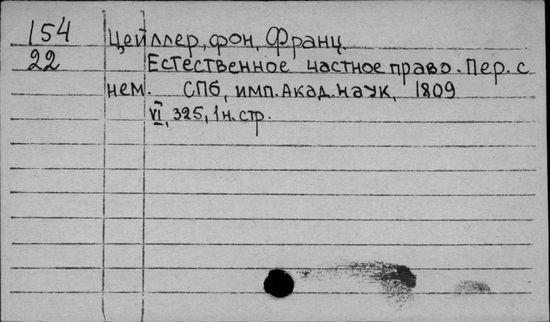 154 Цейллер, фон, Франц.
22 Естественное частное право. Пер. с
нем. СПб, имп. Акад. наук, 1809
VI, 325, 1 н. стр.